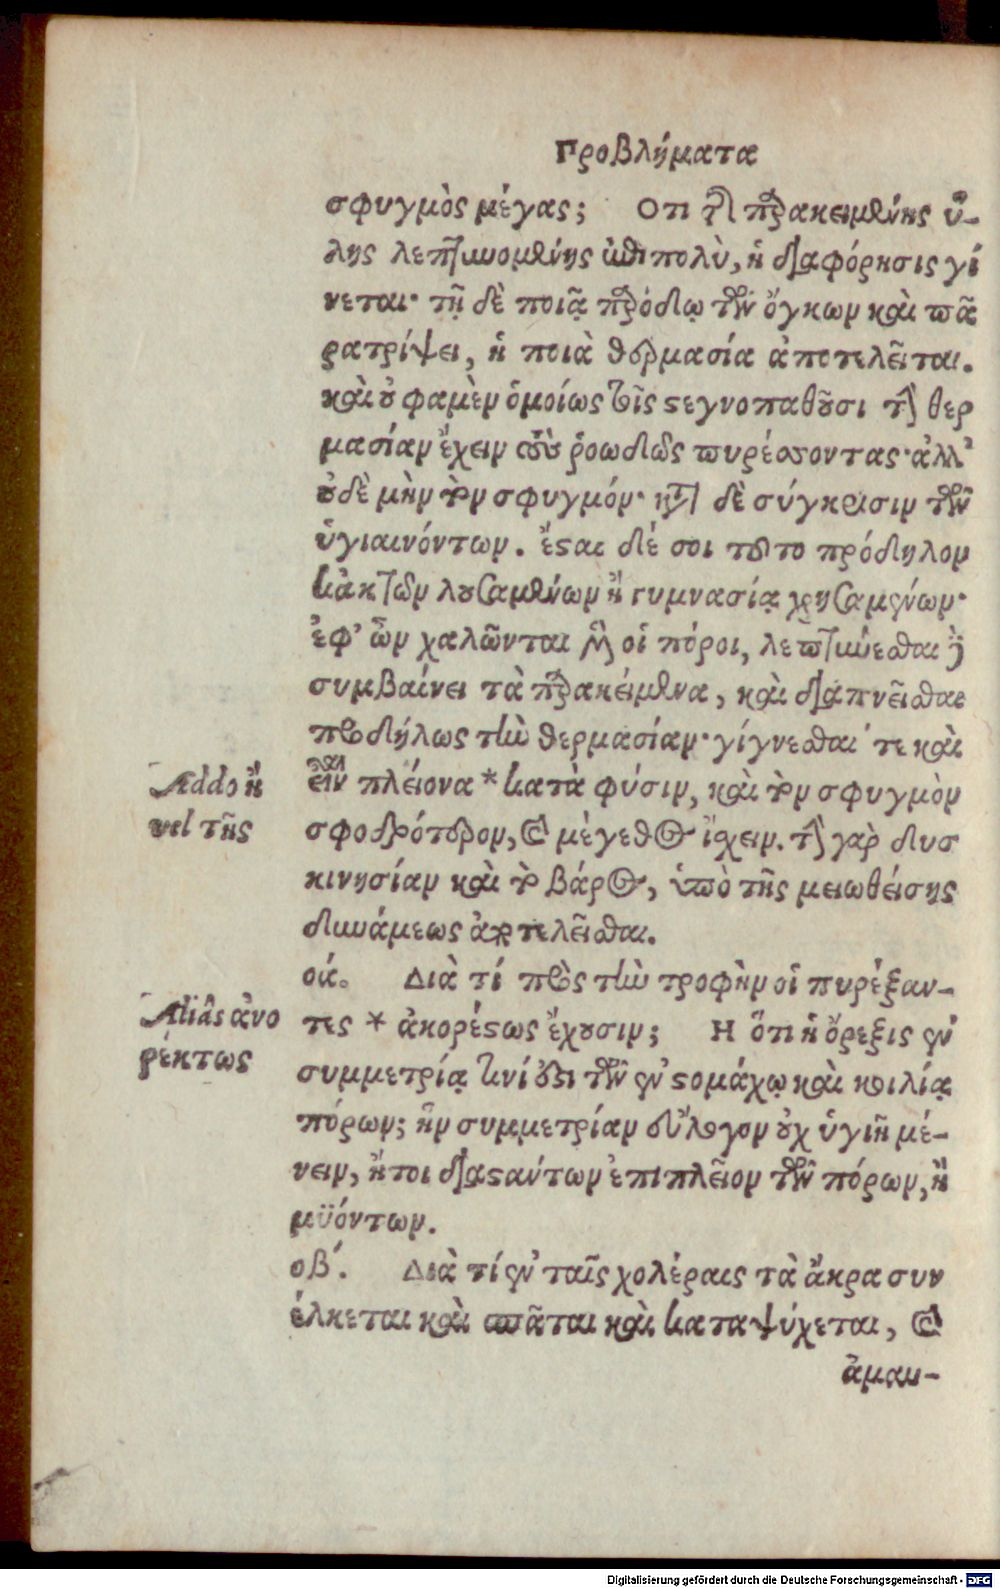 Προβλήματα
σφυγμὸς μέγας; Οτι τῆς παρακειμένης ὕ-
λης λεπτυνομένης ἐπιπολὺ, ἡ διαφόρησις γί
νεται· τῇ δὲ ποιᾷ παρόδῳ τῶν ὄγκων καὶ πα
ρατρίψει, ἡ ποιὰ θερμασία ἀποτελεῖται.
καὶ οὐ φαμὲν ὁμοίως τοῖς στεγνοπαθοῦσι τὴν θερ
μασίαν ἔχειν τοὺς ῥοωδῶς πυρέσσοντας· ἀλλ'
οὐδὲ μὴν τὸν σφυγμόν· κατὰ δὲ σύγκρισιν τῶν
ὑγιαινόντων. ἔσται δέ σοι τοῦτο πρόδηλον
κἀκ τῶν λουσαμένων ἢ γυμνασίᾳ χρησαμένων·
ἐφ' ὧν χαλῶνται μὲν οἱ πόροι, λεπτύνεσθαι δὲ
συμβαίνει τὰ παρακείμενα, καὶ διαπνεῖσθαι
προδήλως τὴν θερμασίαν· γίγνεσθαι τε καὶ
Addo ἢ
vel τῆς
πλείονα * κατὰ φύσιν, καὶ τὸν σφυγμὸν
σφοδρότερον, καὶ μέγεθος ἴσχειν. τὴν γὰρ δυσ
κινησίαν καὶ τὸ βάρος, ὑπὸ τῆς μειωθείσης
δυνάμεως ἀποτελεῖσθαι.
οά. Διὰ τί πρὸς τὴν τροφὴν οἱ πυρέξαν-
Aliâs ἀνο
ρέκτως
τες * ἀκορέστως ἔχουσιν; Η ὅτι ἡ ὄρεξις ἐν
συμμετρίᾳ τινί ἐστι τῶν ἐν στομάχῳ καὶ κοιλίᾳ
πόρων; ἣν συμμετρίαν εὔλογον οὐχ ὑγιῆ μέ-
νειν, ἤτοι διαστάντων ἐπὶ πλεῖον τῶν πόρων, ἢ
μϋόντων.
οβ´. Διὰ τί ἐν ταῖς χολέραις τὰ ἄκρα συν
έλκεται καὶ σπᾶται καὶ καταψύχεται, καὶ
ἀμαυ-
Digitalisierung gefördert durch die Deutsche Forschungsgemeinschaft - DFG